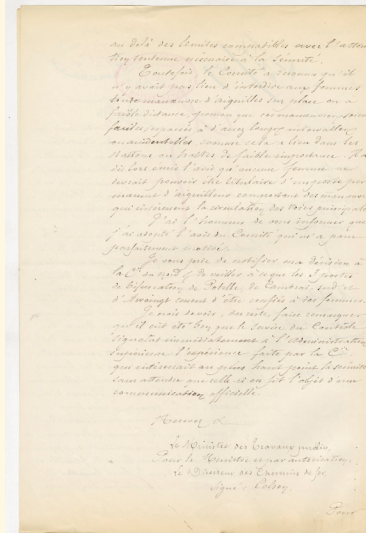 au delà des limites compatibles avec l'atten-
tion continue nécessaire à la sécurité.
Toutefois, le Comité a reconnu qu'il
n'y avait pas lieu d'interdire aux femmes
toute manœuvre d'aiguilles sur place ou à
faible distance, quand ces manœuvres sont
faciles, séparées à d'assez longs intervalles,
ou accidentelles, comme cela a lieu dans les
stations ou haltes de faible importance. Il a
dès lors émis l'avis qu'aucune femme ne
devrait pouvoir être titulaire d'un poste per-
manent d'aiguilleur comportant des manœuvres
qui intéressent la circulation des voies principales.
J'ai l'honneur de vous informer que
j'ai adopté l'avis du Comité qui m'a paru
parfaitement motivé.
Je vous prie de notifier ma décision à
la Cie du Nord & de veiller à ce que les 3 postes
de bifurcation de Cambrai, sud &
cessent d'être confiés à des femmes.
Je crois devoir, en outre, faire remarquer
qu'il eût été bon que le service du Contrôle
signalât immédiatement à l'Administration
supérieure l'expérience faite par la Cie
qui intéressait au plus haut point la sécurité
sans attendre que celle-ci en fît l'objet d'une
communication officielle.
Recevez &
Le Ministre des Travaux publics,
Pour le Ministre et par autorisation,
Le Directeur des Chemins de fer
Signé :
Pour